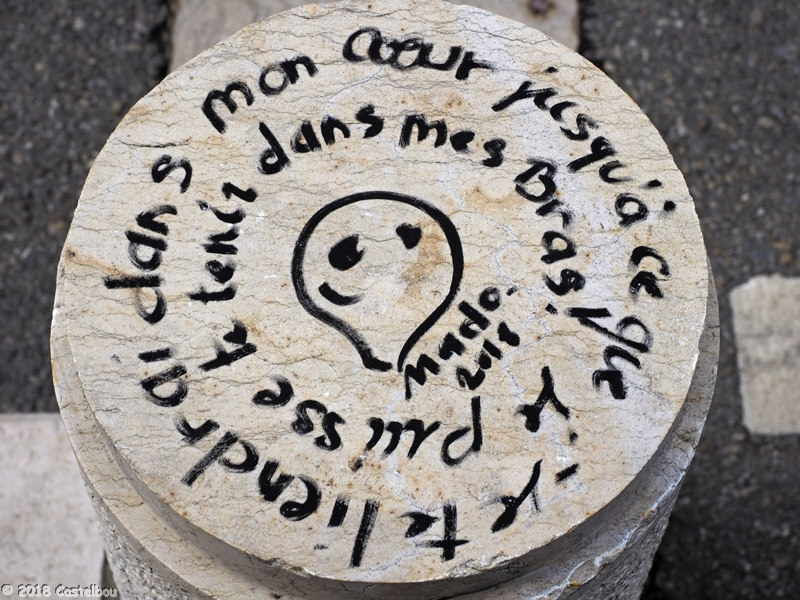 je te tiendrai dans mon cœur jusqu'à ce que
je puisse te tenir dans mes Bras!
mado.
2018
© 2018 Castelbou